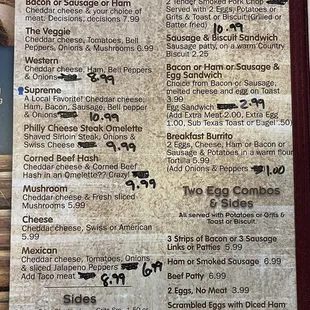 Bacon or Sausage or Ham
Cheddar cheese & your choice of
meat. Decisions, decisions 7.99
The Veggie
Cheddar cheese, Tomatoes, Bell
Peppers, Onions & Mushrooms 6.99
Western
Cheddar cheese, Ham, Bell Peppers
& Onions 8.99
Supreme
A Local Favorite! Cheddar cheese,
Ham, Bacon, Sausage, Bell pepper
& Onions 10.99
Philly Cheese Steak Omelette
Shaved Sirloin Steak, Onions &
Swiss Cheese 9.99
Corned Beef Hash
Cheddar cheese & Corned Beef
Hash in an Omelette?? Crazy!
9.99
Mushroom
Cheddar cheese & Fresh sliced
Mushrooms 5.99
Cheese
Cheddar cheese, Swiss or American
5.99
Mexican
Cheddar cheese, Tomatoes, Onions
& sliced Jalapeno Peppers 6.99
Add Taco meat 8.99
Sides
2 Tender Smoked Pork Chop
Served with 2 Eggs, Potatoes or
Grits & Toast or Biscuit (Grilled or
Batter fried) 10.99
Sausage & Biscuit Sandwich
Sausage patty, on a warm Country
Biscuit 2.25
Bacon or Ham or Sausage &
Egg Sandwich
Choice from Bacon or Ham or Sausage,
melted cheese and egg on Toast
3.99
Egg Sandwich 2.99
(Add Extra Meat 2.00, Extra Egg
1.00, Sub Texas Toast or Bagel .50)
Breakfast Burrito
2 Eggs, Cheese, Ham or Bacon or
Sausage & Potatoes in a warm Flour
Tortilla 5.99
(Add Onions & Peppers 1.00)
Two Egg Combos
& Sides
All served with Potatoes or Grits &
Toast or Biscuit
3 Strips of Bacon or 3 Sausage
Links or Patties 5.99
Ham or Smoked Sausage 6.99
Beef Patty 6.99
2 Eggs, No Meat 3.99
Scrambled Eggs with Diced Ham